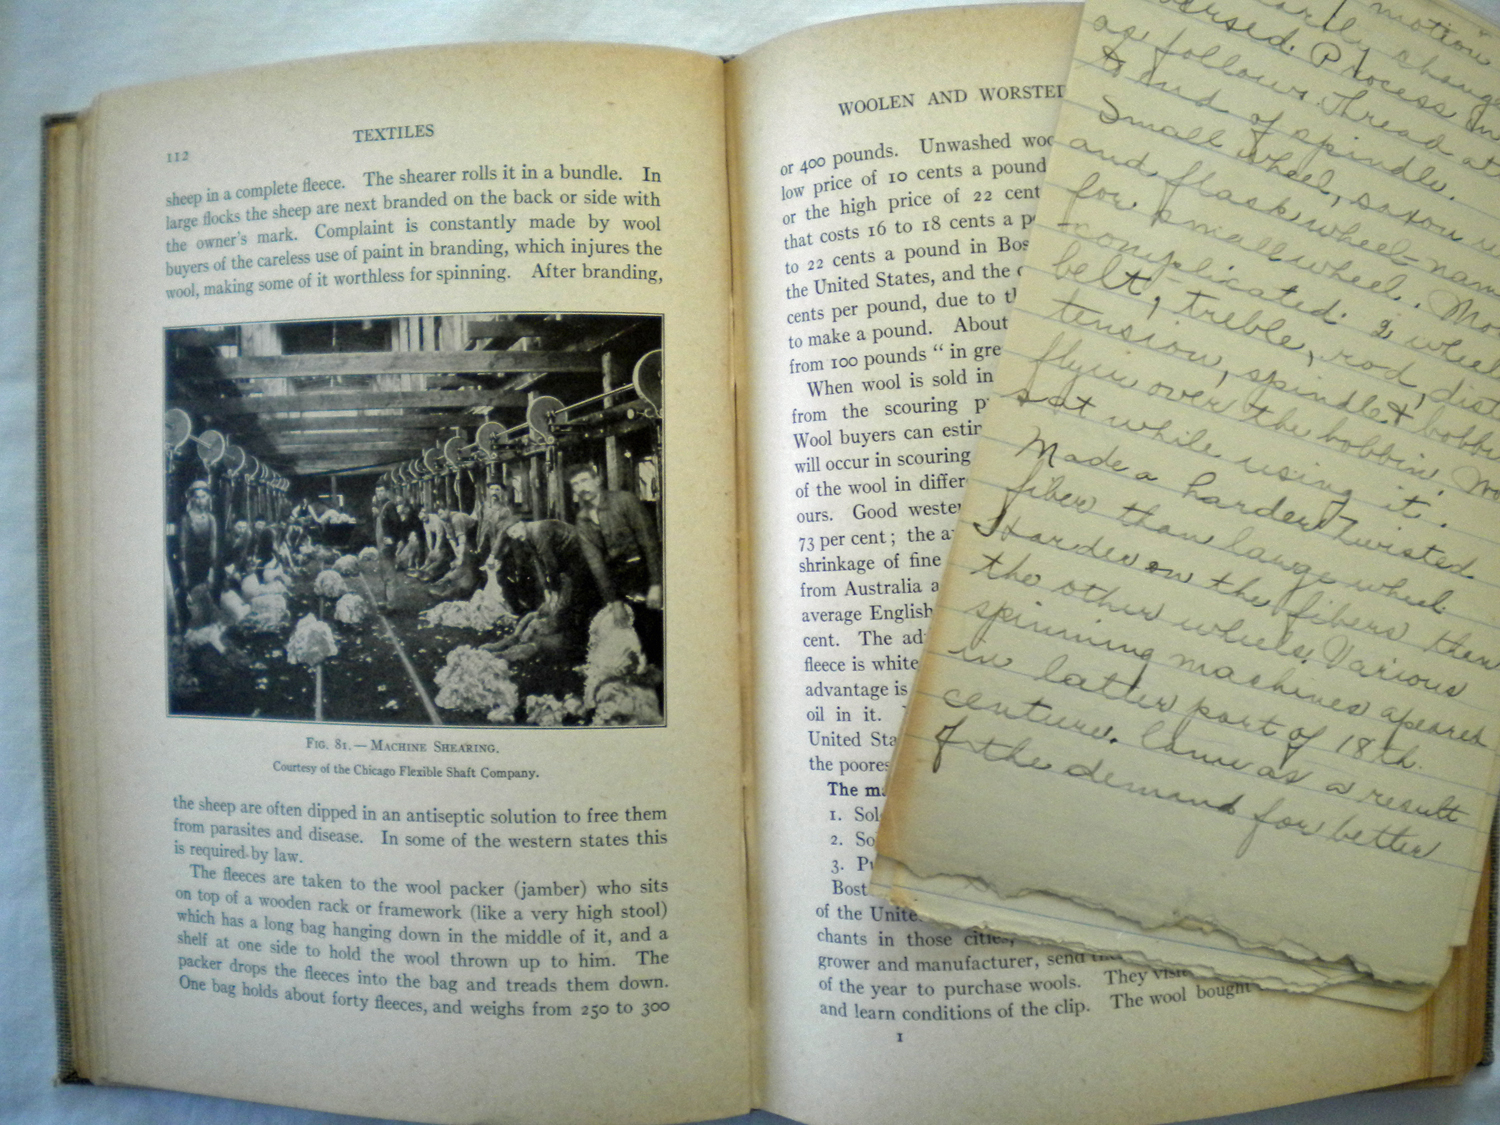 112
TEXTILES
sheep in a complete fleece. The shearer rolls it in a bundle. In
large flocks the sheep are next branded on the back or side with
the owner's mark. Complaint is constantly made by wool
buyers of the careless use of paint in branding, which injures the
wool, making some of it worthless for spinning. After branding,
FIG. 81. — MACHINE SHEARING.
Courtesy of the Chicago Flexible Shaft Company.
the sheep are often dipped in an antiseptic solution to free them
from parasites and disease. In some of the western states this
is required by law.
The fleeces are taken to the wool packer (jamber) who sits
on top of a wooden rack or framework (like a very high stool)
which has a long bag hanging down in the middle of it, and a
shelf at one side to hold the wool thrown up to him. The
packer drops the fleeces into the bag and treads them down.
One bag holds about forty fleeces, and weighs from 250 to 300
WOOLEN AND WORSTED
or 400 pounds. Unwashed
low price of 10 cents a pound
or the high price of 22 cent
that costs 16 to 18 cents a
to 22 cents a pound in Bos
the United States, and the
cents per pound, due to
to make a pound. About
from 100 pounds “ in gre
When wool is sold in
from the scouring
Wool buyers can
will occur in scouring
of the wool in differ
ours. Good weste
73 per cent; the
shrinkage of fine
from Australia a
average English
cent. The ad
fleece is white
advantage is
oil in it.
United Sta
the poores
The
1. Sol
2. So
3.
Bost
of the Unite
chants in those cities,
grower and manufacturer, send
of the year to purchase wools. They visit
and learn conditions of the clip. The wool bought
1
motion
change
versed. Process in
as follows. Thread at
to end of spindle.
Small wheel, saxon
and flask wheel-nam
for small wheel. Mo
complicated. 2 wheel
belt, treble, rod, dist
tension, spindle & bobbi
flyin over the bobbin.
sat while using it.
Made a harder twisted
fiber than large wheel.
Harder on the fibers then
the other wheels. Various
spinning machines apeared
in latter part of 18th.
centure. Came as a result
of the demand for better